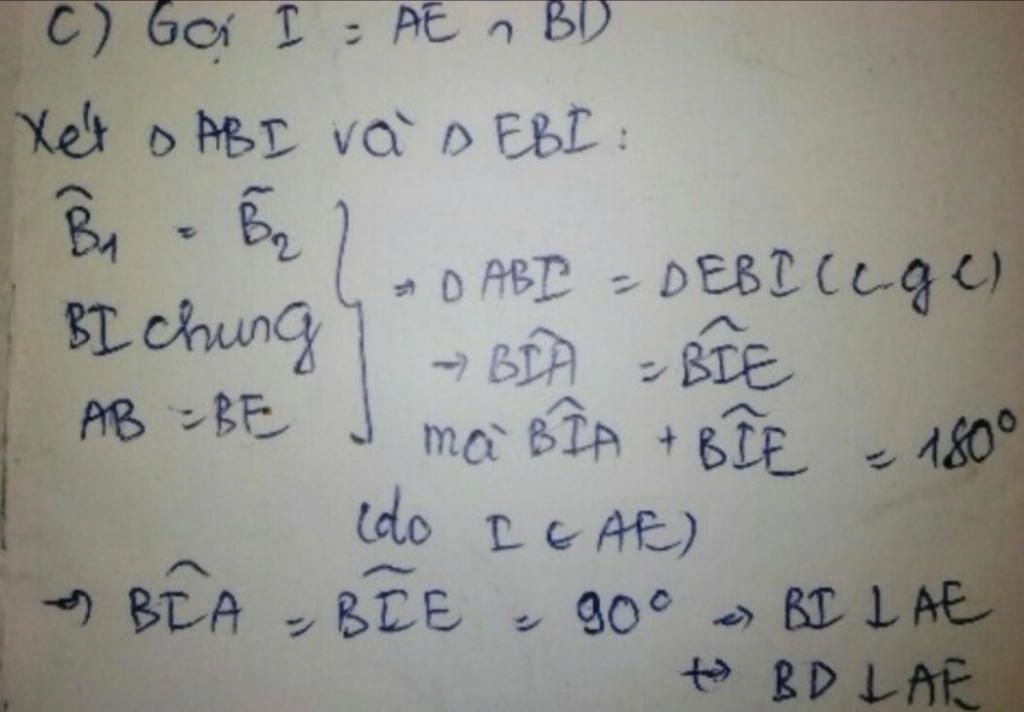 C) Gọi I = AE ∩ BD
Xét Δ ABI và Δ EBI:
B̂₁ = B̂₂
BI chung
AB = BE
⇒ Δ ABI = Δ EBI (c.g.c)
→ BÎA = BÎE
mà BÎA + BÎE = 180°
(do I ∈ AE)
⇒ BÎA = BÎE = 90° ⇒ BI ⊥ AE
⇒ BD ⊥ AE